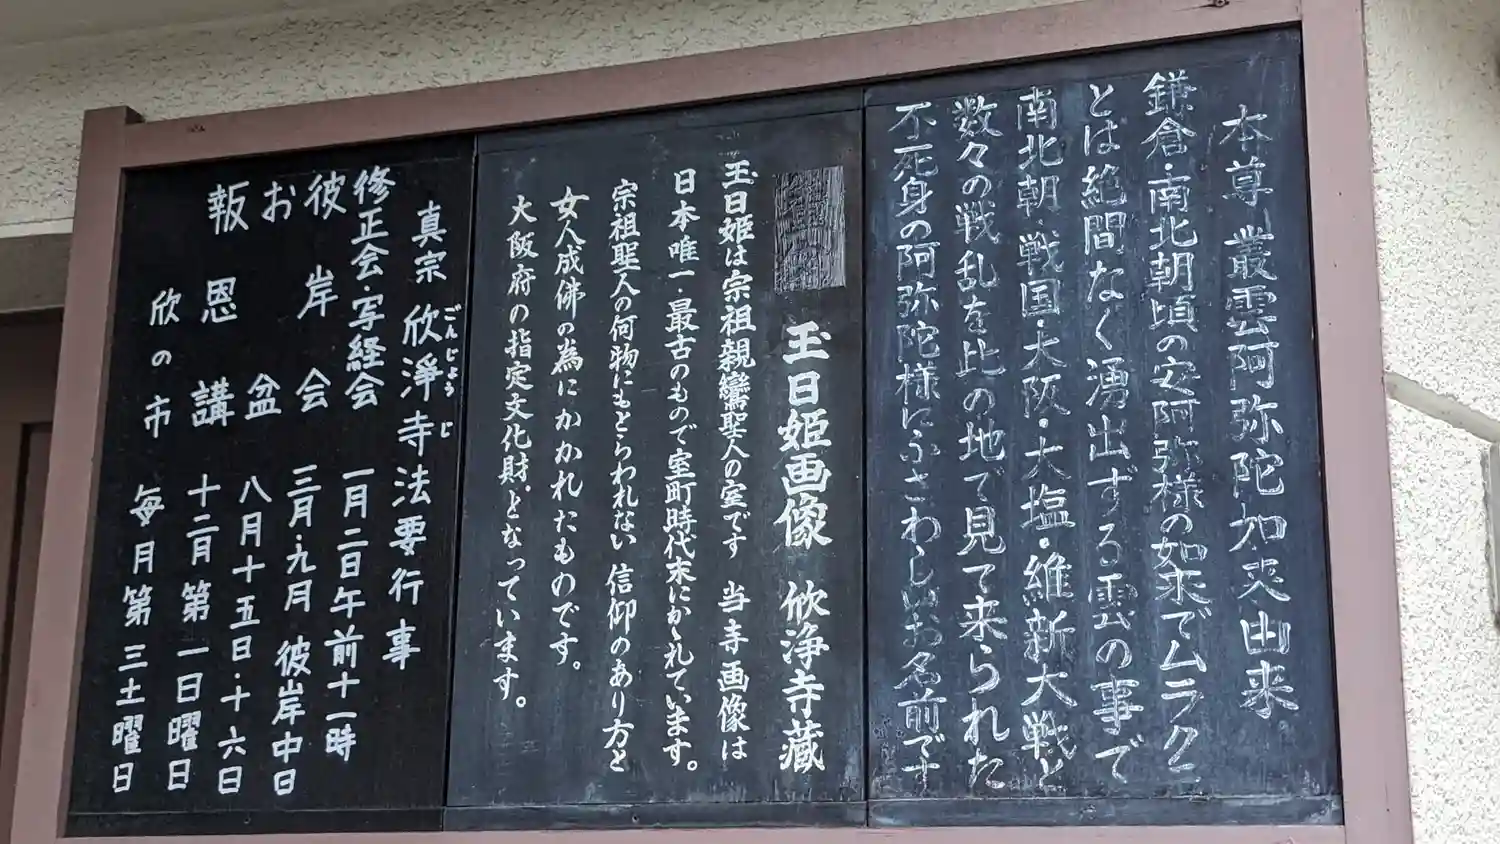 本尊 叢雲阿弥陀如来由来
鎌倉・南北朝頃の安阿弥様の如来でムラクモ
とは絶間なく湧出ずる雲の事で
南北朝・戦国・大阪・大塩・維新大戦と
数々の戦乱を此の地で見て来られた
不死身の阿弥陀様にふさわしいお名前です
玉日姫画像 欣浄寺蔵
玉日姫は宗祖親鸞聖人の室です 当寺画像は
日本唯一・最古のもので室町時代末にかゝれています。
宗祖聖人の何物にもとらわれない 信仰のあり方と
女人成佛の為にかかれたものです。
大阪府の指定文化財となっています。
真宗 欣淨寺 法要行事
ごんじょうじ
修正会・写経会 一月二日午前十一時
彼岸会 三月・九月 彼岸中日
お盆 八月十五日・十六日
報恩講 十二月第一日曜日
欣の市 毎月第三土曜日